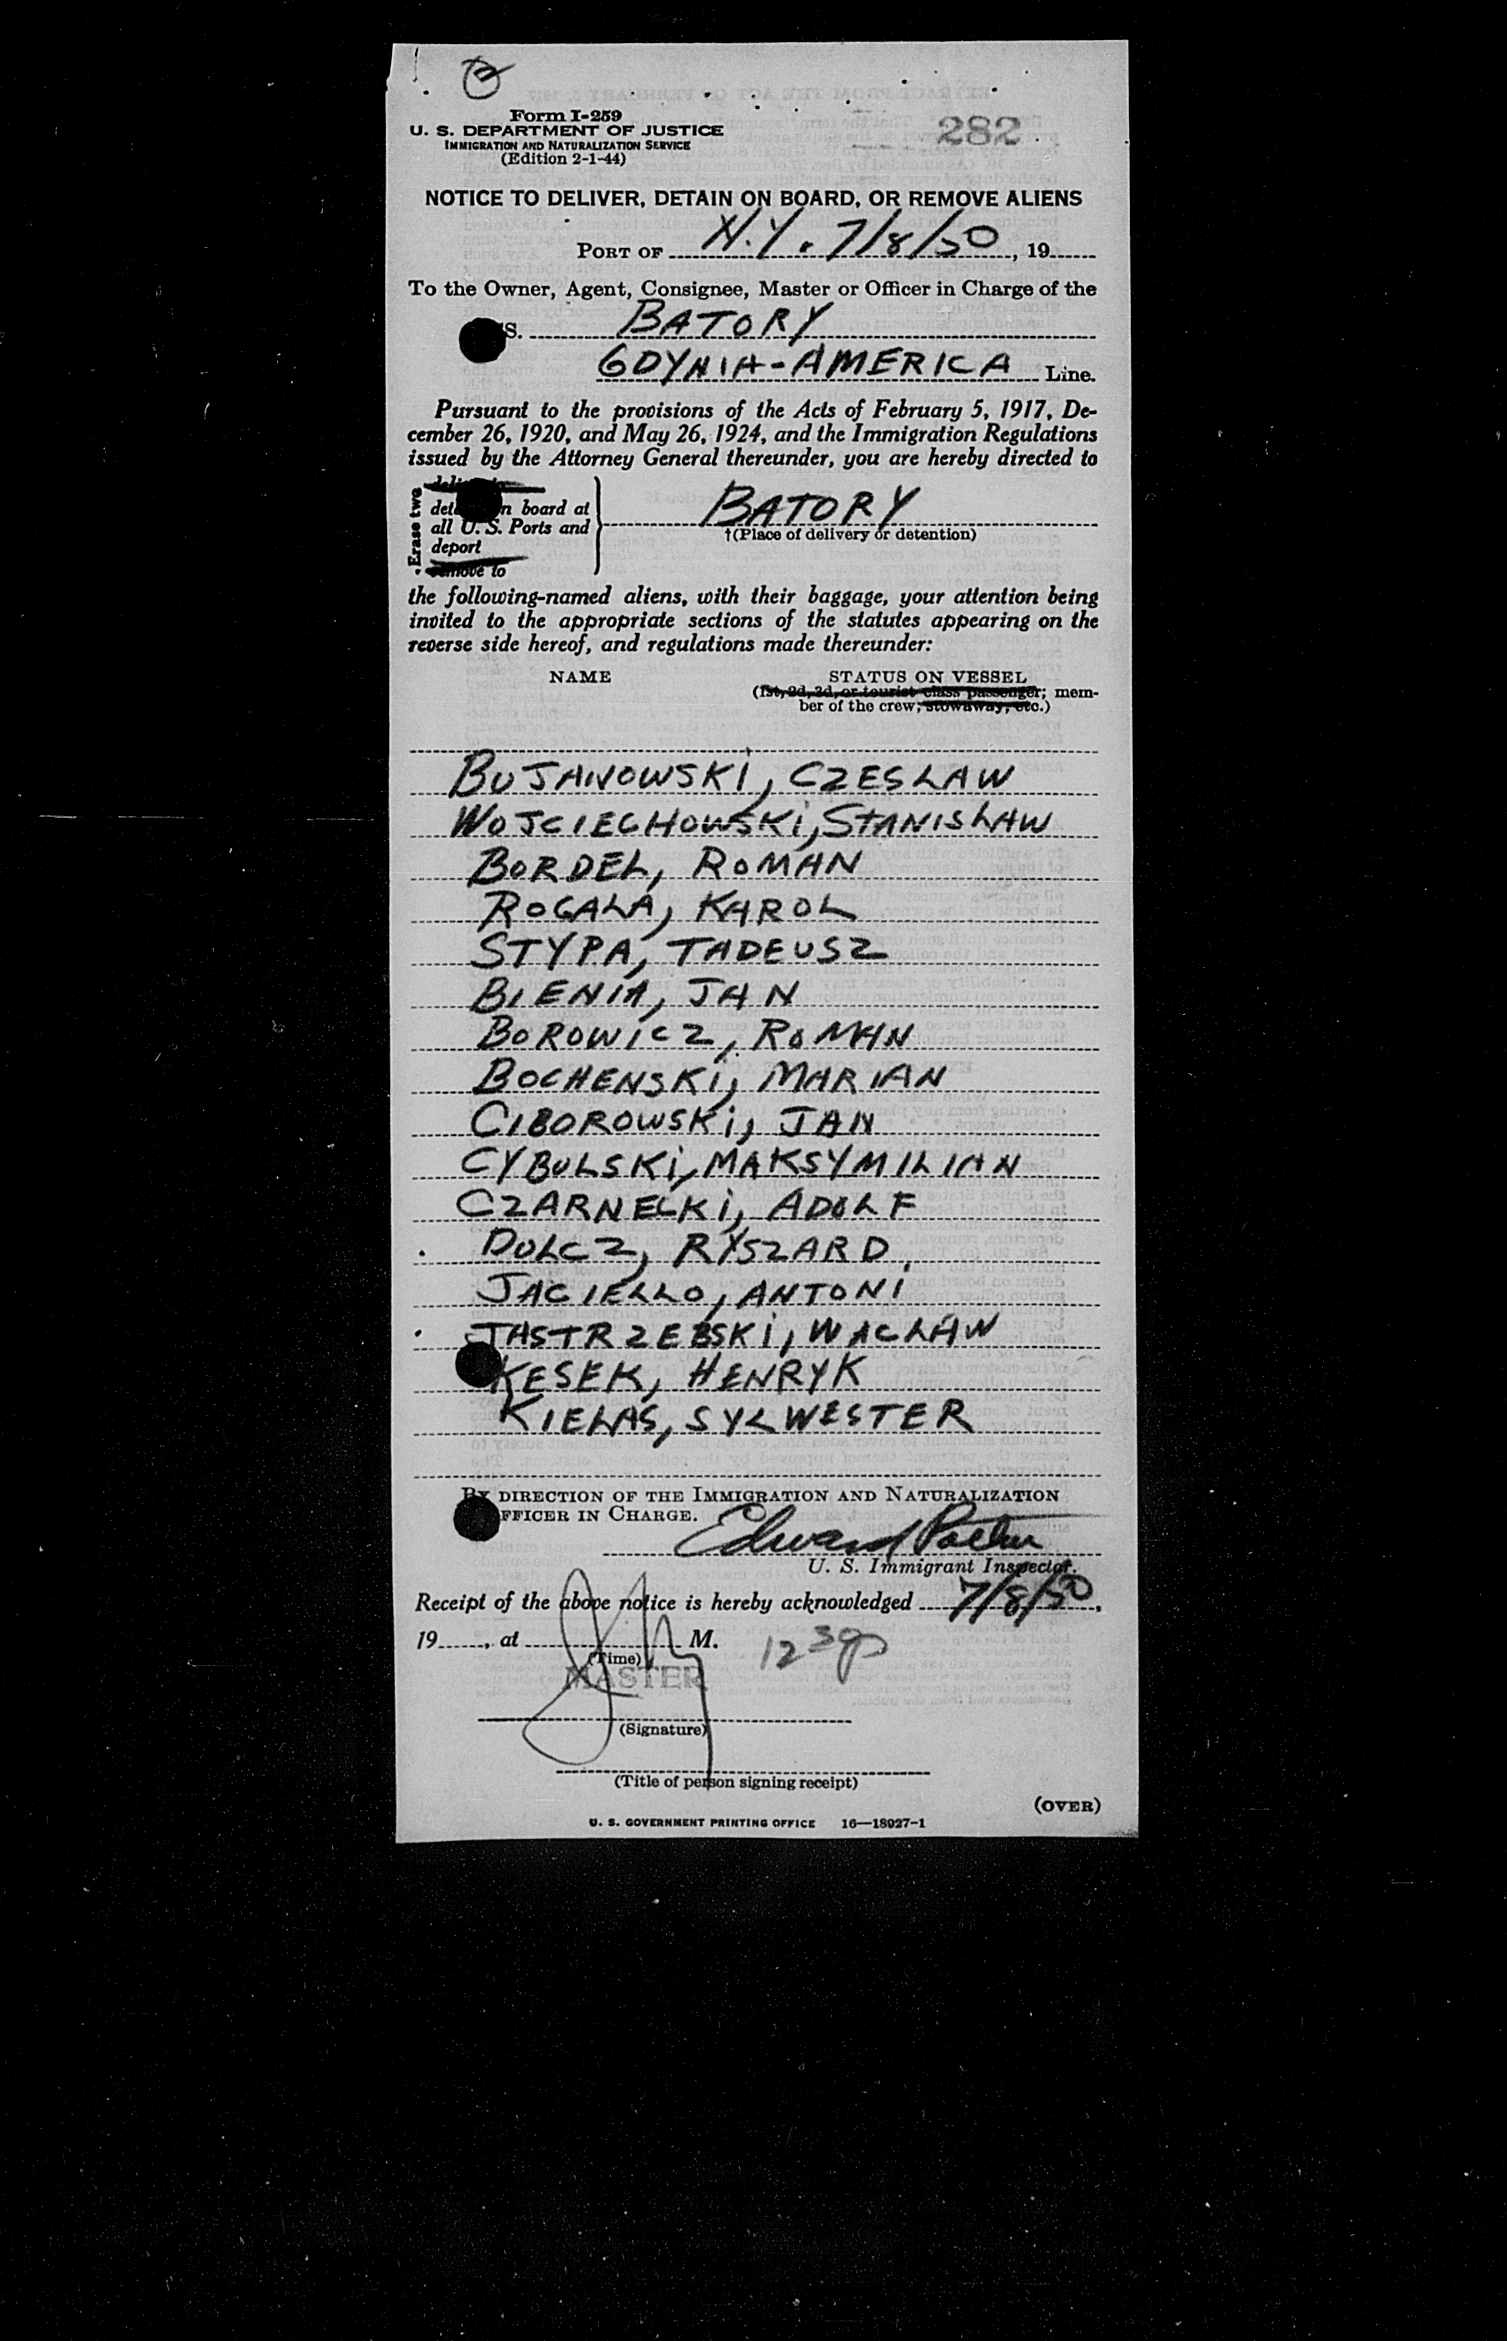 Form I-259
U. S. DEPARTMENT OF JUSTICE
IMMIGRATION AND NATURALIZATION SERVICE
(Edition 2-1-44)
282
NOTICE TO DELIVER, DETAIN ON BOARD, OR REMOVE ALIENS
PORT OF N.Y. 7/8/50, 19
To the Owner, Agent, Consignee, Master or Officer in Charge of the
S. BATORY
GDYNIA-AMERICA Line.
Pursuant to the provisions of the Acts of February 5, 1917, De-
cember 26, 1920, and May 26, 1924, and the Immigration Regulations
issued by the Attorney General thereunder, you are hereby directed to
Erase two
board at
all U. S. Ports and
deport
remove to
BATORY
†(Place of delivery or detention)
the following-named aliens, with their baggage, your attention being
invited to the appropriate sections of the statutes appearing on the
reverse side hereof, and regulations made thereunder:
NAME STATUS ON VESSEL
(1st, 2d, 3d, or tourist class passenger; mem-
ber of the crew; stowaway, etc.)
BUJANOWSKI, CZESLAW
WOJCIECHOWSKI, STANISLAW
BORDEL, ROMAN
ROGALA, KAROL
STYPA, TADEUSZ
BIENIA, JAN
BOROWICZ, ROMAN
BOCHENSKI, MARIAN
CIBOROWSKI, JAN
CYBULSKI, MAKSYMILIAN
CZARNECKI, ADOLF
DULCZ, RYSZARD
JAGIELLO, ANTONI
JASTRZEBSKI, WACLAW
KESEK, HENRYK
KIELAS, SYLWESTER
BY DIRECTION OF THE IMMIGRATION AND NATURALIZATION
OFFICER IN CHARGE.
Edward
U. S. Immigrant Inspector.
Receipt of the above notice is hereby acknowledged 7/8/50,
19, at M. 12 30p
(Time)
MASTER
(Signature)
(Title of person signing receipt)
(OVER)
U. S. GOVERNMENT PRINTING OFFICE 16—18927-1